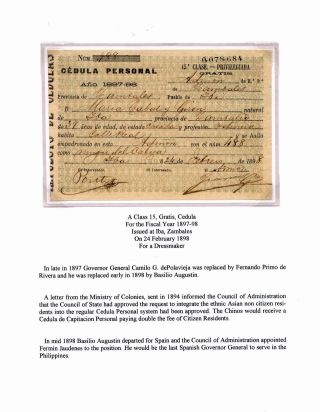 Núm. 488
0.078.684
15.ª CLASE.—PRIVILEGIADA
GRATIS
CÉDULA PERSONAL
AÑO 1897-98
IMPUESTO DE CÉDULAS
Provincia de Zambales Pueblo de Iba
D.ª María natural
de Iba provincia de Zambales
de años de edad, de estado y profesión
habita Calle Real
con el núm. 488
Iba 24 de Febrero de 1898
A Class 15, Gratis, Cedula
For the Fiscal Year 1897-98
Issued at Iba, Zambales
On 24 February 1898
For a Dressmaker
In late in 1897 Governor General Camilo G. dePolavieja was replaced by Fernando Primo de
Rivera and he was replaced early in 1898 by Basilio Augustin.
A letter from the Ministry of Colonies, sent in 1894 informed the Council of Administration
that the Council of State had approved the request to integrate the ethnic Asian non citizen resi-
dents into the regular Cedula Personal system had been approved. The Chinos would receive a
Cedula de Capitacion Personal paying double the fee of Citizen Residents.
In mid 1898 Basilio Augustin departed for Spain and the Council of Administration appointed
Fermin Jaudenes to the position. He would be the last Spanish Governor General to serve in the
Philippines.